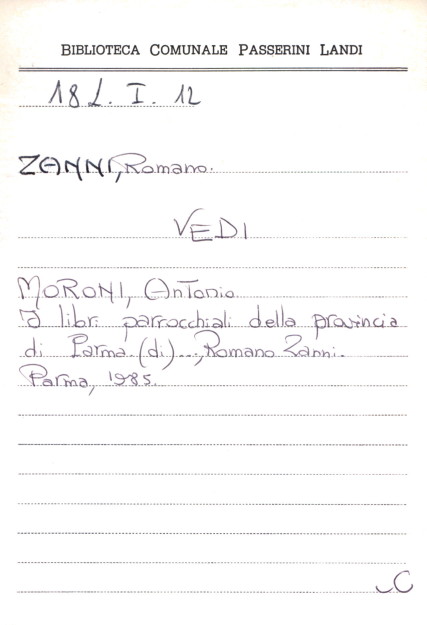 BIBLIOTECA COMUNALE PASSERINI LANDI
18 L. I. 12
ZANNI, Romano.
VEDI
MORONI, Antonio
I libri parrocchiali della provincia
di Parma (di)..., Romano Zanni.
Parma, 1985.